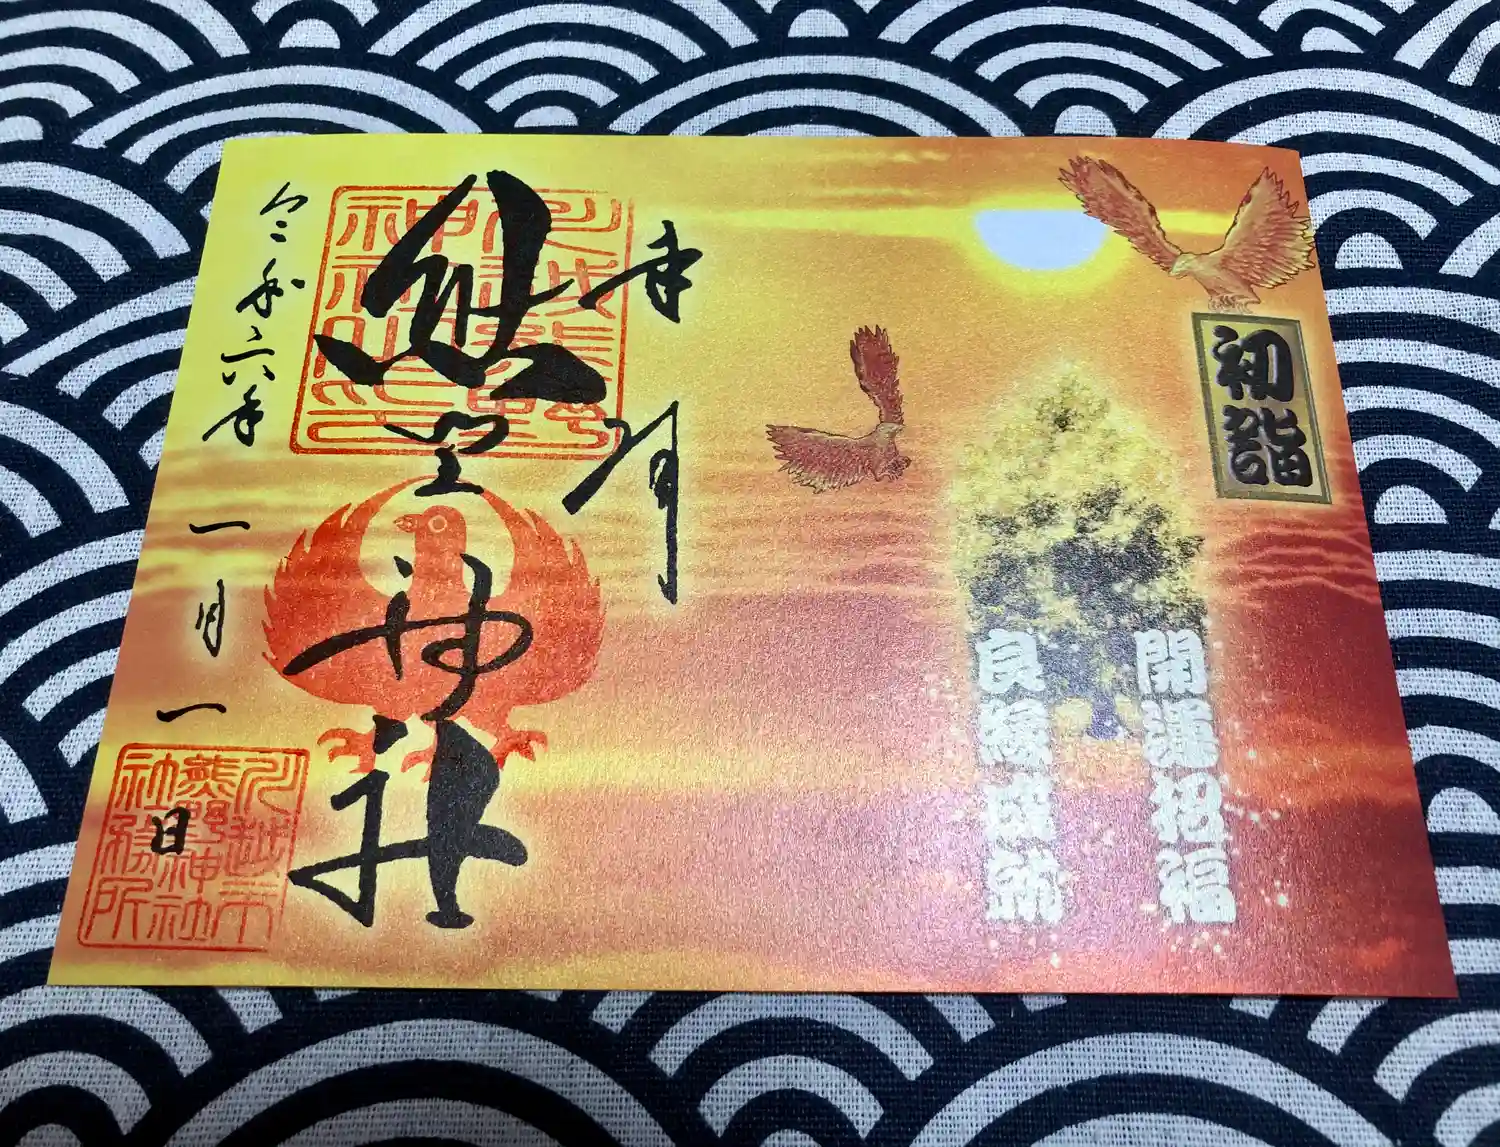 初詣
開運招福
良縁成就
奉拝
熊野神社
令和六年一月一日
川越市
熊野神社
社務所